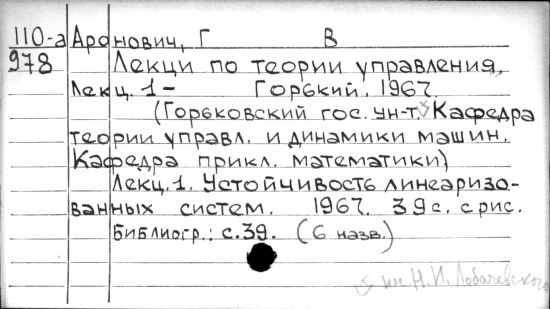 110-а Аронович, Г В
978 Лекци по теории управления,
Лекц. 1- Горький. 1967.
(Горьковский гос. ун-т. Кафедра
теории управл. и динамики машин.
Кафедра прикл. математики)
Лекц. 1. Устойчивость линеаризо-
ванных систем. 1967. 39с. с рис.
Библиогр.: с. 39. (6 назв.)
им. Н. И. Лобачевского